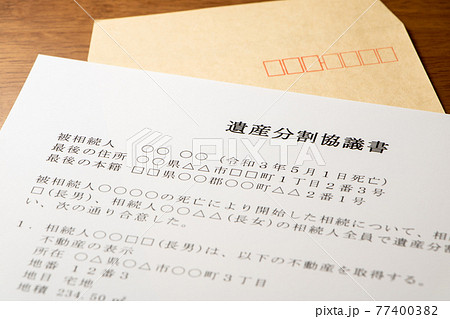 遺産分割協議書
被相続人　○○ ○○（令和3年5月1日死亡）
最後の住所　○○県△△市□□町1丁目2番3号
最後の本籍　□□県○○郡○○町△△2番5号
被相続人○○○○の死亡により開始した相続について、相
□（長男）、相続人○○△△（長女）の相続人全員で遺産分割
い、次の通り合意した。
1．相続人○○□□（長男）は、以下の不動産を取得する。
不動産の表示
所在　○△県○△市○○町3丁目
地番　12番3
地目　宅地
地積　234.50㎡
PIXTA
pixta.jp - 77400382